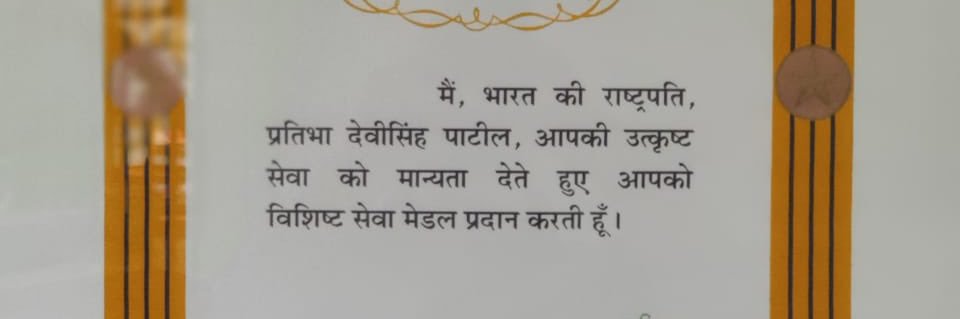 मैं, भारत की राष्ट्रपति,
प्रतिभा देवीसिंह पाटील, आपकी उत्कृष्ट
सेवा को मान्यता देते हुए आपको
विशिष्ट सेवा मेडल प्रदान करती हूँ।